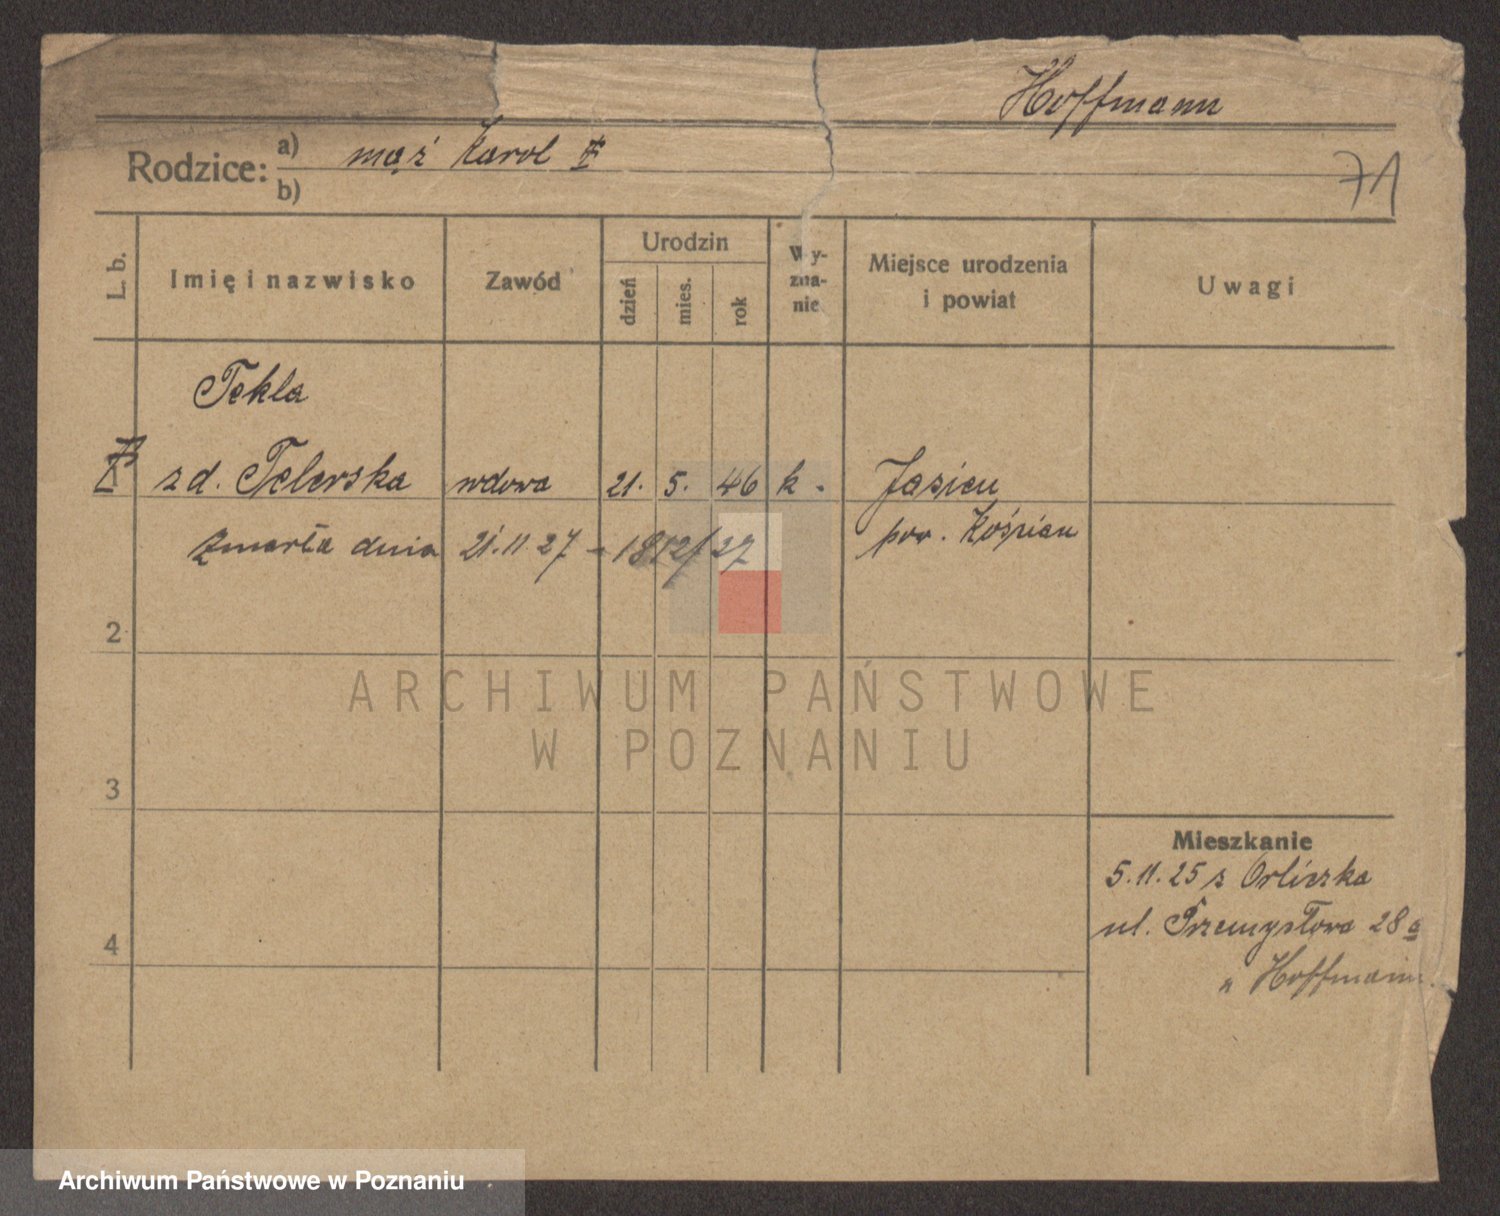 Hoffmann
Rodzice: a) mąż Karol
b)
71
L. b.
Imię i nazwisko
Zawód
Urodzin
dzień
mies.
rok
Wy-
zna-
nie
Miejsce urodzenia
i powiat
Uwagi
Tekla
zd. Telerska wdowa 21. 5. 46 k. Jasień
zmarła dnia 21.11 27 - 1812/27 pow. Kościan
2
3
4
Mieszkanie
5.11.25 z Orliczka
ul. Przemysłowa 28a
u Hoffmann.
ARCHIWUM PAŃSTWOWE
W POZNANIU
Archiwum Państwowe w Poznaniu